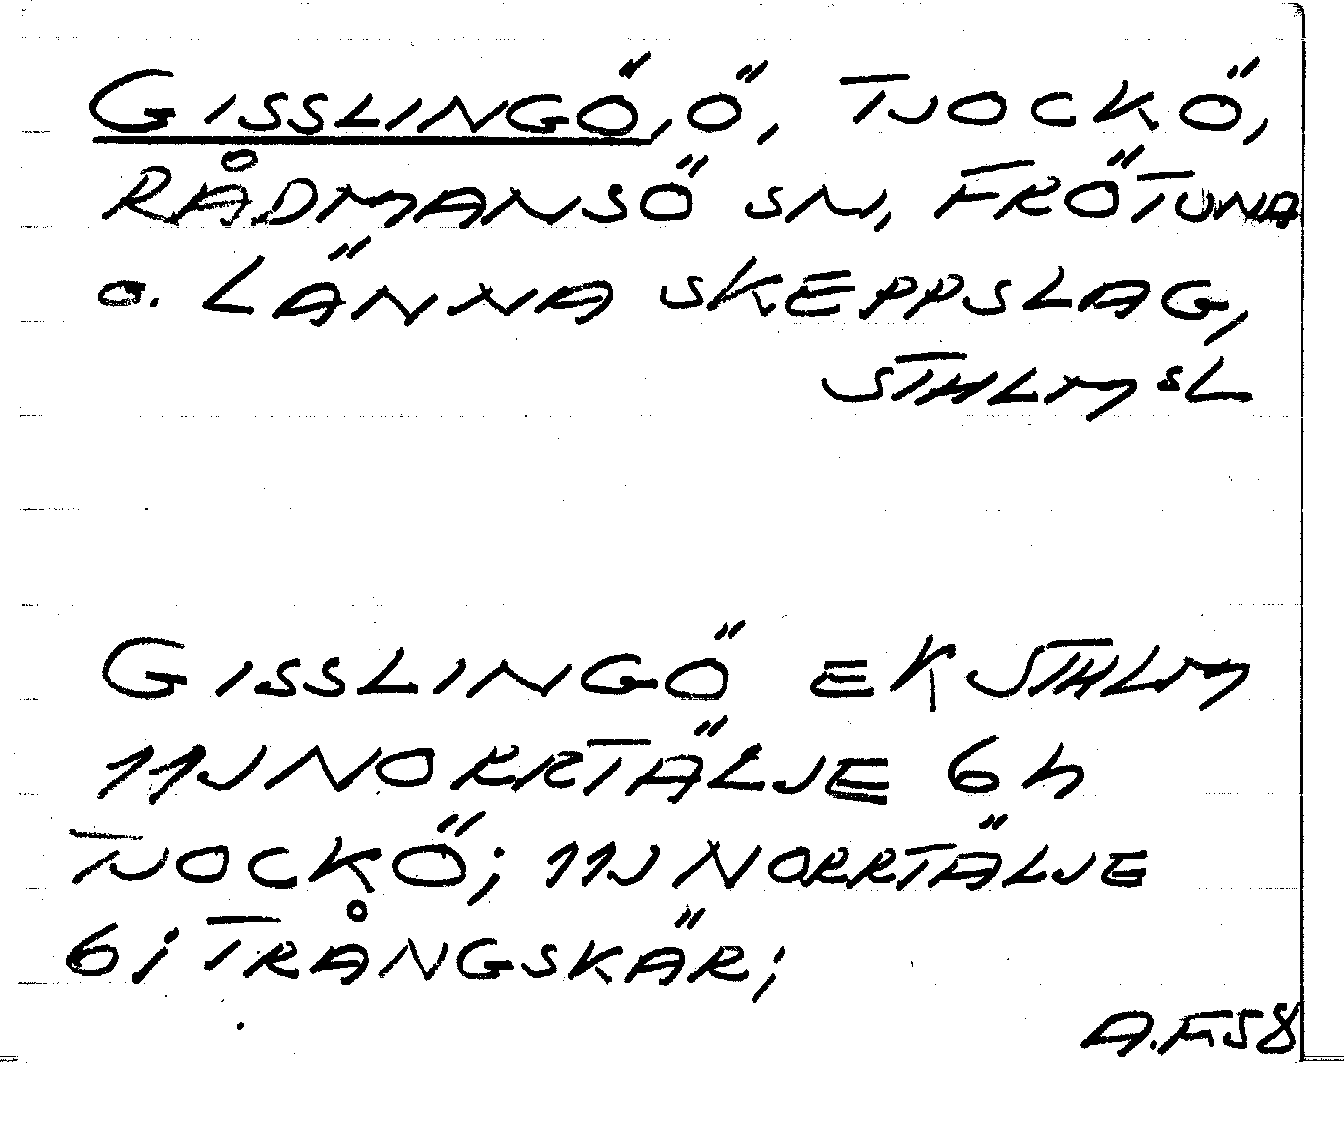 GISSLINGÖ, Ö, TJOCKÖ,
RÅDMANSÖ SN, FRÖTUNA
o. LÄNNA SKEPPSLAG,
STHLMSL
GISSLINGÖ EK STHLM
11J NORRTÄLJE 6h
TJOCKÖ; 11J NORRTÄLJE
6i TRÅNGSKÄR;
A.F58